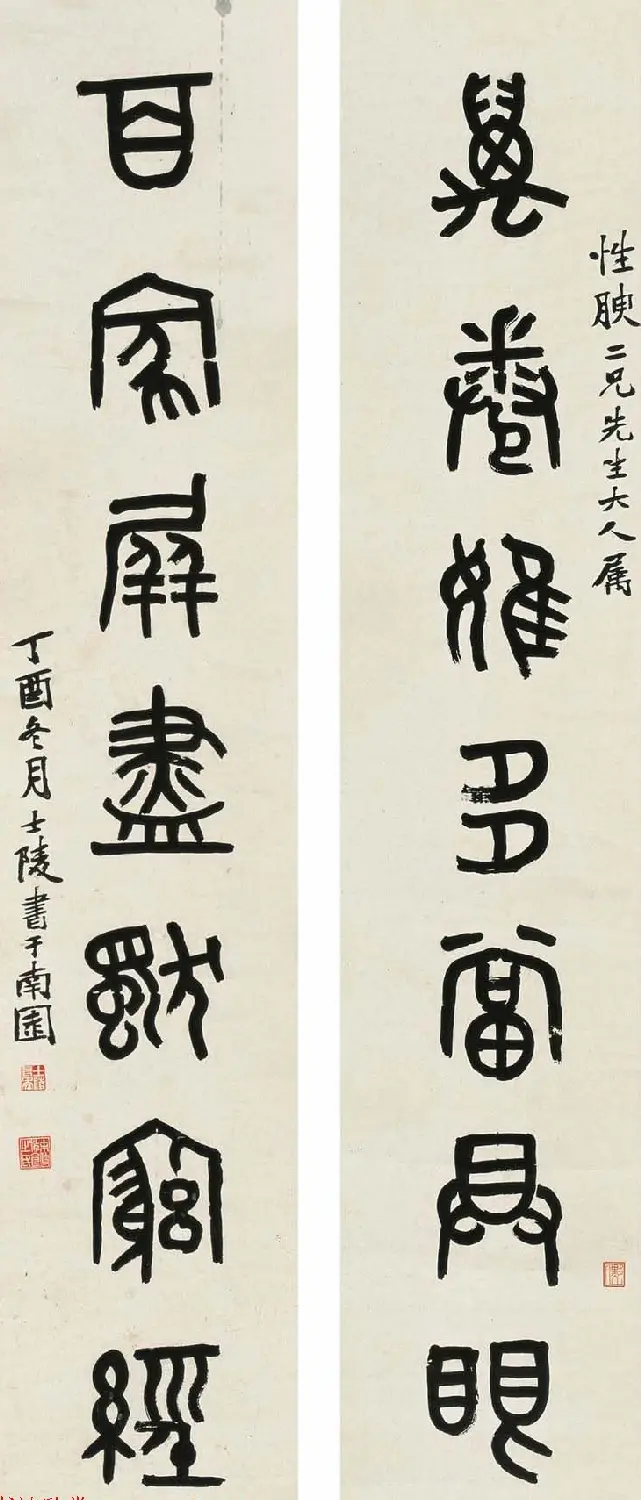 性腴二兄先生大人属
萬卷雖多當具眼
百家屏盡獨窮經
丁酉冬月士陵書于南園